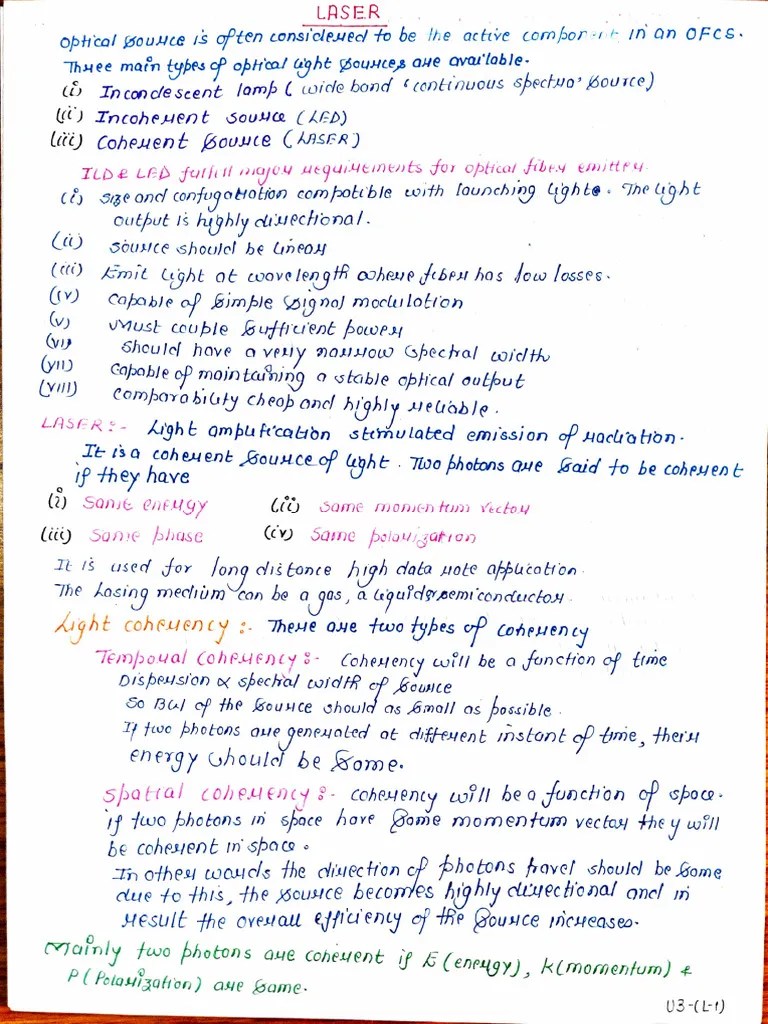 LASER
Optical source is often considered to be the active component in an OFCS.
Three main types of optical light sources are available.
(i) Incandescent lamp ( wide band 'continuous spectra' source)
(ii) Incoherent source (LED)
(iii) Coherent source (LASER)
ILD & LED fulfill major requirements for optical fiber emitter.
(i) Size and confugatiation compatible with launching lights. The light
output is highly directional.
(ii) source should be linear
(iii) Emit light at wavelength where fiber has low losses.
(iv) capable of simple signal modulation
(v) Must couple sufficient power
(vi) should have a very narrow spectral width
(vii) capable of maintaining a stable optical output
(viii) comparability cheap and highly reliable.
LASER:- Light amplification stimulated emission of radiation.
It is a coherent source of light. Two photons are said to be coherent
if they have
(i) same energy (ii) same momentum vector
(iii) same phase (iv) same polarization
It is used for long distance high data rate application.
The Lasing medium can be a gas, a liquid or semiconductor.
Light coherency:- There are two types of coherency
Temporal coherency:- coherency will be a function of time
Dispersion ∝ spectral width of source
so BW of the source should as small as possible.
If two photons are generated at different instant of time, their
energy should be same.
Spatial coherency:- coherency will be a function of space.
if two photons in space have same momentum vector they will
be coherent in space.
In other words the direction of photons travel should be same
due to this, the source becomes highly directional and in
result the overall efficiency of the source increases.
Mainly two photons are coherent if E (energy), k(momentum) &
P (Polarization) are same.
U3-(L-1)